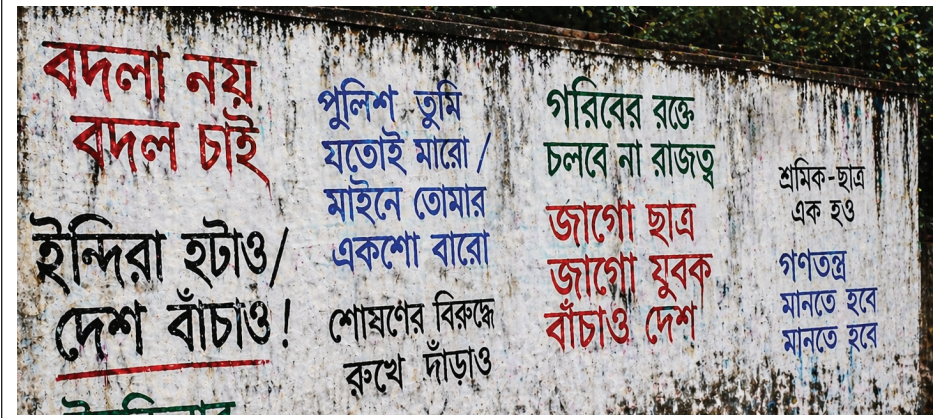 বদলা নয়
বদল চাই
ইন্দিরা হটাও/
দেশ বাঁচাও!
পুলিশ তুমি
যতোই মারো/
মাইনে তোমার
একশো বারো
শোষণের বিরুদ্ধে
রুখে দাঁড়াও
গরিবের রক্তে
চলবে না রাজত্ব
জাগো ছাত্র
জাগো যুবক
বাঁচাও দেশ
শ্রমিক-ছাত্র
এক হও
গণতন্ত্র
মানতে হবে
মানতে হবে